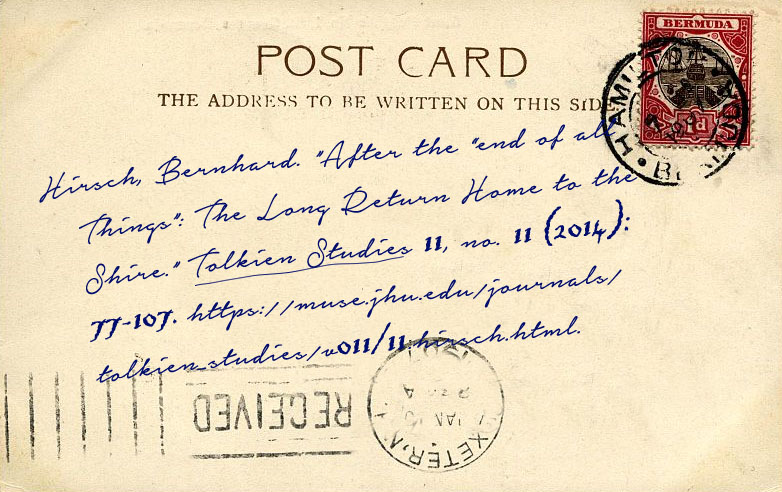 BERMUDA
POST CARD
THE ADDRESS TO BE WRITTEN ON THIS SIDE
Hirsch, Bernhard. "After the "end of all
Things": The Long Return Home to the
Shire." Tolkien Studies 11, no. 11 (2014):
77-107. https://muse.jhu.edu/journals/
tolkien_studies/v011/11.hirsch.html.
RECEIVED